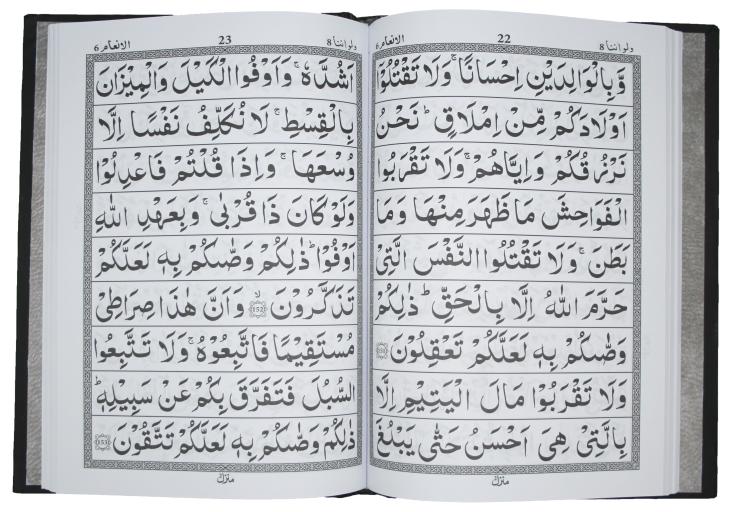 ولو اننا ٨
22
الانعام ٦
وَّبِالْوَالِدَيْنِ اِحْسَانًا ۚ وَلَا تَقْتُلُوْۤا
اَوْلَادَكُمْ مِّنْ اِمْلَاقٍ ؕ نَحْنُ
نَرْزُقُكُمْ وَاِيَّاهُمْ ۚ وَلَا تَقْرَبُوا
الْفَوَاحِشَ مَا ظَهَرَ مِنْهَا وَمَا
بَطَنَ ۚ وَلَا تَقْتُلُوا النَّفْسَ الَّتِىْ
حَرَّمَ اللّٰهُ اِلَّا بِالْحَقِّ ؕ ذٰلِكُمْ
وَصّٰىكُمْ بِهٖ لَعَلَّكُمْ تَعْقِلُوْنَ 151
وَلَا تَقْرَبُوْا مَالَ الْيَتِيْمِ اِلَّا
بِالَّتِىْ هِىَ اَحْسَنُ حَتّٰى يَبْلُغَ
منزل
ولو اننا ٨
23
الانعام ٦
اَشُدَّهٗ ۚ وَاَوْفُوا الْكَيْلَ وَالْمِيْزَانَ
بِالْقِسْطِ ۚ لَا نُكَلِّفُ نَفْسًا اِلَّا
وُسْعَهَا ۚ وَاِذَا قُلْتُمْ فَاعْدِلُوْا
وَلَوْ كَانَ ذَا قُرْبٰى ۚ وَبِعَهْدِ اللّٰهِ
اَوْفُوْا ؕ ذٰلِكُمْ وَصّٰىكُمْ بِهٖ لَعَلَّكُمْ
تَذَكَّرُوْنَ ۙ 152 وَاَنَّ هٰذَا صِرَاطِىْ
مُسْتَقِيْمًا فَاتَّبِعُوْهُ ۚ وَلَا تَتَّبِعُوا
السُّبُلَ فَتَفَرَّقَ بِكُمْ عَنْ سَبِيْلِهٖ ؕ
ذٰلِكُمْ وَصّٰىكُمْ بِهٖ لَعَلَّكُمْ تَتَّقُوْنَ 153
منزل